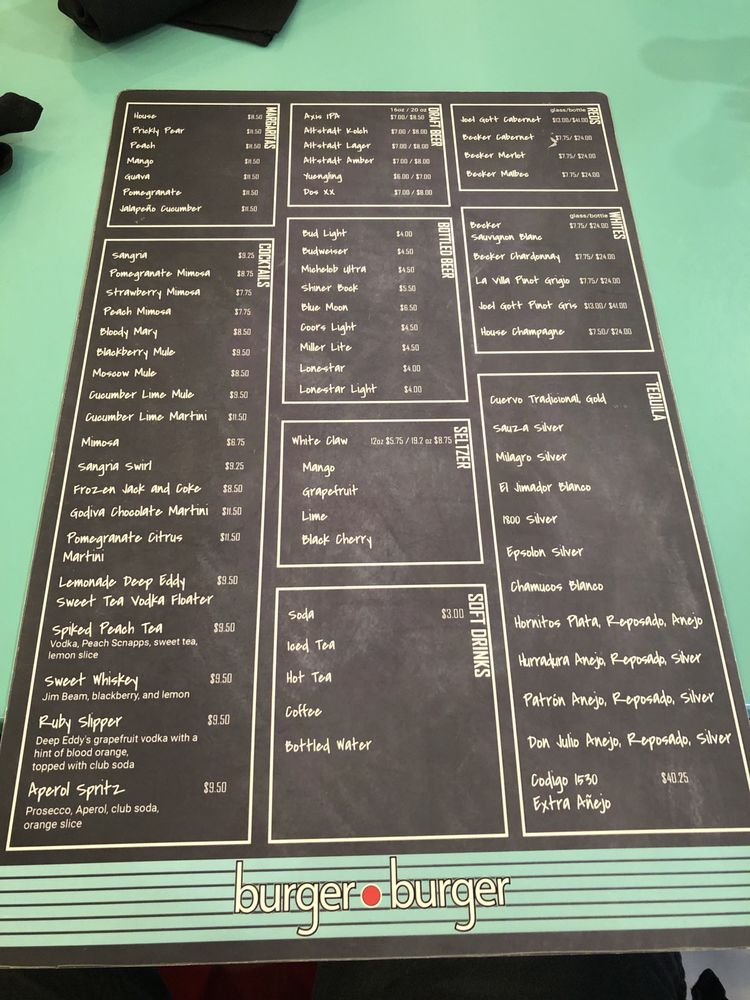 MARGARITAS
House $11.50
Prickly Pear $11.50
Peach $11.50
Mango $11.50
Guava $11.50
Pomegranate $11.50
Jalapeño Cucumber $11.50
COCKTAILS
Sangria $9.25
Pomegranate Mimosa $8.75
Strawberry Mimosa $7.75
Peach Mimosa $7.75
Bloody Mary $8.50
Blackberry Mule $9.50
Moscow Mule $8.50
Cucumber Lime Mule $9.50
Cucumber Lime Martini $11.50
Mimosa $6.75
Sangria Swirl $9.25
Frozen Jack and Coke $8.50
Godiva Chocolate Martini $11.50
Pomegranate Citrus $11.50
Martini
Lemonade Deep Eddy $9.50
Sweet Tea Vodka Floater
Spiked Peach Tea $9.50
Vodka, Peach Scnapps, sweet tea,
lemon slice
Sweet Whiskey $9.50
Jim Beam, blackberry, and lemon
Ruby Slipper $9.50
Deep Eddy's grapefruit vodka with a
hint of blood orange,
topped with club soda
Aperol Spritz $9.50
Prosecco, Aperol, club soda,
orange slice
DRAFT BEER
16oz / 20 oz
Axis IPA $7.00/ $8.50
Altstadt Kolch $7.00 / $8.00
Altstadt Lager $7.00 / $8.00
Altstadt Amber $7.00 / $8.00
Yuengling $6.00 / $7.00
Dos XX $7.00 / $8.00
BOTTLED BEER
Bud Light $4.00
Budweiser $4.50
Michelob Ultra $4.50
Shiner Bock $5.50
Blue Moon $6.50
Coors Light $4.50
Miller Lite $4.50
Lonestar $4.00
Lonestar Light $4.00
SELTZER
White Claw 12oz $5.75 / 19.2 oz $8.75
Mango
Grapefruit
Lime
Black Cherry
SOFT DRINKS
Soda $3.00
Iced Tea
Hot Tea
Coffee
Bottled Water
REDS
glass/bottle
Joel Gott Cabernet $13.00/$41.00
Becker Cabernet $7.75/ $24.00
Becker Merlot $7.75/ $24.00
Becker Malbec $7.75/ $24.00
WHITES
glass/bottle
Becker $7.75/ $24.00
Sauvignon Blanc
Becker Chardonnay $7.75/ $24.00
La Villa Pinot Grigio $7.75/ $24.00
Joel Gott Pinot Gris $13.00/ $41.00
House Champagne $7.50/ $24.00
TEQUILA
Cuervo Tradicional, Gold
Sauza Silver
Milagro Silver
El Jimador Blanco
1800 Silver
Epsolon Silver
Chamucos Blanco
Hornitos Plata, Reposado, Anejo
Hurradura Anejo, Reposado, Silver
Patrón Anejo, Reposado, Silver
Don Julio Anejo, Reposado, Silver
Codigo 1530 $40.25
Extra Añejo
burger burger